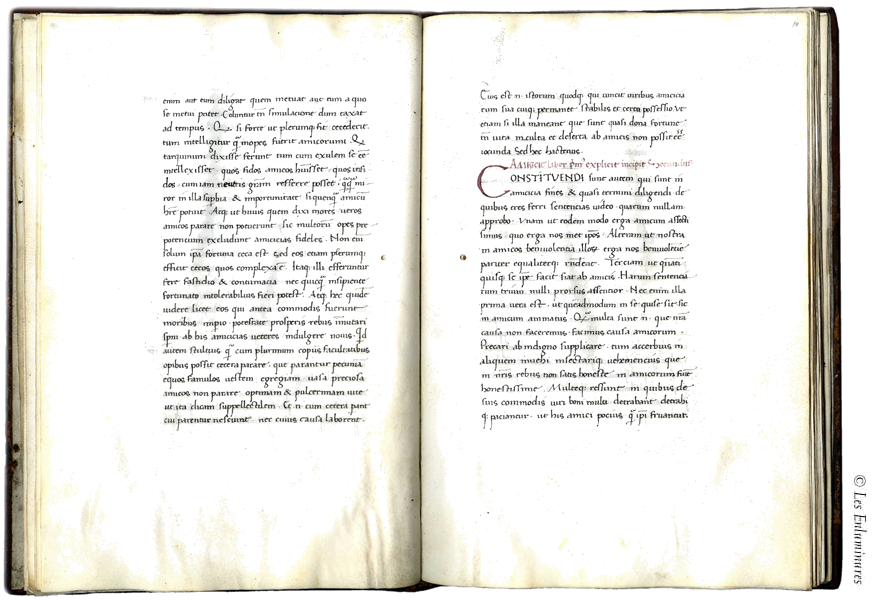 enim aut eum diligat quem metuat aut eum a quo
se metui putet Coluntur tn simulacione dum taxat
ad tempus. Q si forte ut plerumq fit ceciderit
tum intelligitur q inopes fuerit amicorum. Q
tarquinum dixisse ferunt tum cum exulem se eē
intellexisset quos fidos amicos huisset quos infi
dos. cum iam neutris grām refferre posset. qq mi
ror in illa supbia & importunitate si quenq amicū
hre potuit. Atq ut huius quem dixi mores ueros
amicos parare non potuerunt sic multorū opes pre
potentium excludunt amicicias fideles. Non em̄
solum ipā fortuna ceca est sed eos etiam plerumq
efficit cecos quos complexa ē. Itaq illi efferuntur
fere fastidio & contumacia nec quicq insipiente
fortunato intolerabilius fieri potest. Atq hec quidē
uidere licet eos qui antea commodis fuerint
moribus inpio potestate prosperis rebus inmutari
spni ab his amicicias ueteres indulgere nouis. Qd
autem stultius q cum plurimum copiis facultatibus
opibus possit cetera parare que parantur pecunia
equos famulos uestem egregiam uasa preciosa
amicos non parare optimam & pulcerrimam uite
ut ita dicam suppellectilem Et n cum cetera parāt
cui parentur nesciunt nec cuius causa laborent.
Cuius est n istorum quodq qui uincit uiribus amicicia
rum sua cuiq permanet stabilis et certa possessio. Ut
etiam si illa maneant que sunt quasi dona fortune
tn uita inculta et deserta ab amicis non possit eē
iocunda Sed hec hactenus.
liber pm explicit incipit Secundus
CONSTITUENDI sunt autem qui sint in
amicicia fines & quasi termini diligendi de
quibus tres ferri sentencias uideo quarum nullam
approbo. Unam ut eodem modo erga amicum affecti
simus quo erga nos met ipos. Alteram ut nostra
in amicos beniuolentia illor erga nos beniuolentie
pariter equaliterq rndeat. Terciam ut quāti
quisq se ipe facit fiat ab amicis. Harum sentencia
rum trium nulli prorsus assentior. Nec enim illa
prima uera est. ut queadmodum in se quisq sit sic
in amicum animatus. Q multa sunt n que nrā
causa non faceremus facimus causa amicorum.
Precari ab indigno supplicare. tum acerbius in
aliquem inuehi insectariq uehemencius que
in nris rebus non satis honeste in amicorum fiūt
honestissime. Multeq res sunt in quibus de
suis commodis uiri boni multa detrahant detrahi
q paciantur. ut his amici pocius q ipi fruantur.
© Les Enluminures